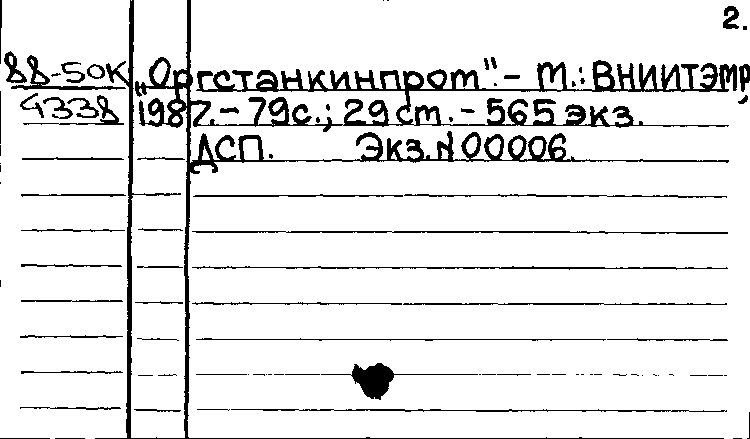 2.
88-50К „Оргстанкинпром". - М.: ВНИИТЭМР,
4338 1987. - 79с.; 29 ст. - 565 экз.
ДСП. Экз. N 00006.